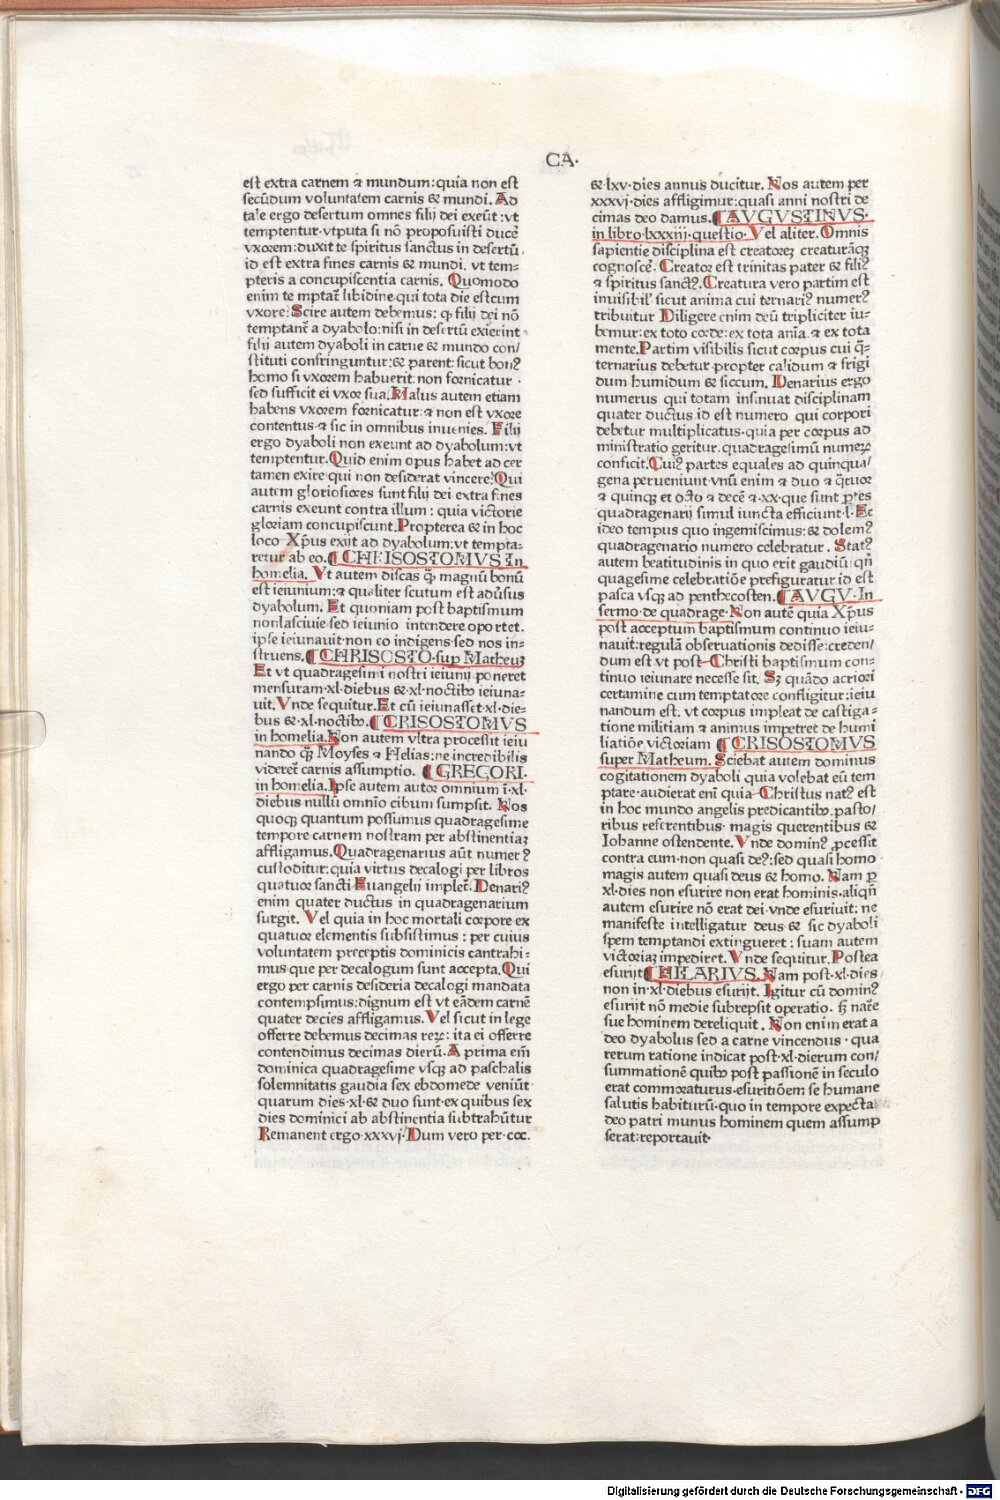 CA·
est extra carnem ⁊ mundum: quia non est
secūdum voluntatem carnis & mundi. Ad
tale ergo desertum omnes filij dei exeūt: vt
temptentur. vtputa si nō proposuisti ducē
vxorem: duxit te spiritus sanctus in desertū.
id est extra fines carnis & mundi. vt tem⸗
pteris a concupiscentia carnis. Quomodo
enim te mptat̄ libidine qui tota die est cum
vxore: Scire autem debemus: ꝙ filij dei nō
temptant̄ a dyabolo: nisi in desertū exierint
filij autem dyaboli in carne & mundo con/
stituti confringuntur: & parent: sicut bonꝰ
homo si vxorem habuerit non fornicatur ·
sed sufficit ei vxor sua. Malus autem etiam
habens vxorem fornicatur: ⁊ non est vxore
contentus· ⁊ sic in omnibus inuenies. Filij
ergo dyaboli non exeunt ad dyabolum: vt
temptentur. Quid enim opus habet ad cer
tamen exire qui non desiderat vincere? Qui
autem gloriosiores sunt filij dei extra fines
carnis exeunt contra illum : quia victorie
gloriam concupiscunt. Propterea & in hoc
loco Xp̄us exijt ad dyabolum: vt tempta⸗
retur ab eo. ¶ CHRISOSTOMVS In
homelia. Vt autem discas ꝙ̄ magnū bonū
est ieiunium: ⁊ qualiter scutum est aduersus
dyabolum. Et quoniam post baptismum
non lasciuie sed ieiunio intendere oportet.
ipse ieiunauit· non eo indigens· sed nos in⸗
struens. ¶ CHRISOSTO· sup Matheuꝫ
Et vt quadragesimi nostri ieiunij poneret
mensuram· xl· diebus & ·xl· noctibꝰ ieiuna⸗
uit. Vnde sequitur. Et cū ieiunasset xl· die⸗
bus & ·xl· noctibꝰ. ¶ CRISOSTOMVS
in homelia. Non autem vltra processit ieiu
nando ꝙ̄ Moyses ⁊ Helias: ne incredibilis
videret̄ carnis assumptio. ¶ GREGORI·
in homelia. Ipse autem autor omnium ī ·xl·
diebus nullū omnīo cibum sumpsit. Nos
quoqꝫ quantum possumus quadragesime
tempore carnem nostram per abstinentiaꝫ
affligamus. Quadragenarius aūt numerꝰ
custoditur: quia virtus decalogi per libros
quatuor sancti Euangelij implet̄. Denariꝰ
enim quater ductus in quadragenarium
surgit. Vel quia in hoc mortali corpore ex
quatuor elementis subsistimus : per cuius
voluntatem preceptis dominicis contrahi⸗
mus que per decalogum sunt accepta. Qui
ergo per carnis desideria decalogi mandata
contempsimus: dignum est vt eādem carnē
quater decies affligamus. Vel sicut in lege
offerre debemus decimas reꝝ: ita ei offerre
contendimus decimas dierū. A prima em̄
dominica quadragesime vsqꝫ ad paschalis
solemnitatis gaudia sex ebdomede veniūt
quarum dies ·xl· & duo sunt· ex quibus sex
dies dominici ab abstinentia subtrahūtur
Remanent ergo ·xxxvj· Dum vero per· ccc.
& ·lxv· dies annus ducitur. Nos autem per
xxxvj· dies affligimur: quasi anni nostri de
cimas deo damus. ¶ AVGVSTINVS·
in libro· lxxxiij· questio· Vel aliter. Omnis
sapientie disciplina est creatoreꝫ creaturāqꝫ
cognoscē. Creator est trinitas pater & filiꝰ
⁊ spiritus sanctꝰ. Creatura vero partim est
inuisibil' sicut anima cui ternariꝰ numerꝰ
tribuitur Diligere enim deū tripliciter iu⸗
bemur: ex toto corde: ex tota anīa· ⁊ ex tota
mente. Partim visibilis sicut corpus cui q̄⸗
ternarius debetur propter calidum ⁊ frigi
dum humidum & siccum. Denarius ergo
numerus qui totam insinuat disciplinam
quater ductus id est numero qui corpori
debetur multiplicatus· quia per corpus ad
ministratio geritur. quadragesimū numeꝝ
conficit. Cuiꝰ partes equales ad quinqua/
gena perueniunt· vnū enim ⁊ duo ⁊ q̄tuor
& quinqꝫ et octo ⁊ decē ⁊ ·xx· que sunt p̄tes
quadragenarij simul iuncta efficiunt· l· Et
ideo tempus quo ingemiscimus: & dolemꝰ
quadragenario numero celebratur. Statꝰ
autem beatitudinis in quo erit gaudiū: qn̄
quagesīme celebratiōe prefiguratur id est
pasca vsqꝫ ad penthecosten. ¶ AVGV· In
sermo· de quadrage· Non autē quia Xp̄us
post acceptum baptismum continuo ieiu⸗
nauit: regulā obseruationis dedisse: creden/
dum est vt post Christi baptismum con⸗
tinuo ieiunare necesse sit. Sꝫ quādo acriori
certamine cum temptatore confligitur: ieiu
nandum est. vt corpus impleat de castiga⸗
tione militiam ⁊ animus impetret de humi
liatiōe victoriam ¶ CRISOSTOMVS
super Matheum. Sciebat autem dominus
cogitationem dyaboli quia volebat eū tem
ptare· audierat enī quia Christus natꝰ est
in hoc mundo angelis predicantibꝰ. pasto/
ribus referentibus· magis querentibus &
Iohanne ostendente. Vnde dominꝰ ꝓcessit
contra eum· non quasi deꝰ: sed quasi homo·
magis autem quasi deus & homo. Nam ꝑ
xl· dies non esurire non erat hominis. aliqn̄
autem esurire nō erat dei· vnde esuriuit: ne
manifeste intelligatur deus & sic dyaboli
spem temptandi extingueret : suam autem
victoriaꝫ impediret. Vnde sequitur. Postea
esurijt ¶ HELARIVS. Nam post· xl· dies/
non in ·xl· diebus esurijt. Igitur cū dominꝰ
esurijt nō inedie subrepsit operatio. sꝫ nat̄re
sue hominem dereliquit. Non enim erat a
deo dyabolus sed a carne vincendus· qua
rerum ratione indicat post· xl· dierum con/
summationē quibꝰ post passionē in seculo
erat commoraturus· esuritiōem se humane
salutis habiturū· quo in tempore expecta
deo patri munus hominem quem assump
serat: reportauit·
Digitalisierung gefördert durch die Deutsche Forschungsgemeinschaft - DFG